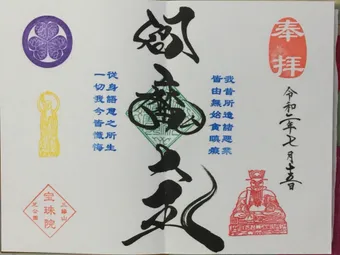 奉拝
令和二年七月十五日
我昔所造諸悪業
皆由無始貪瞋癡
閻魔大王
従身語意之所生
一切我今皆懺悔
三縁山
宝珠院
芝公園